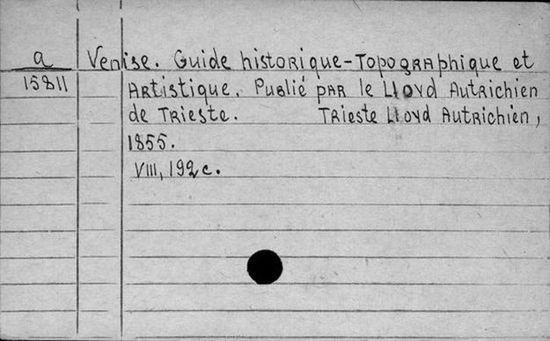 a Venise. Guide historique-Topographique et
15811 Artistique. Publié par le Lloyd Autrichien
de Trieste. Trieste Lloyd Autrichien,
1855.
VIII, 192 c.